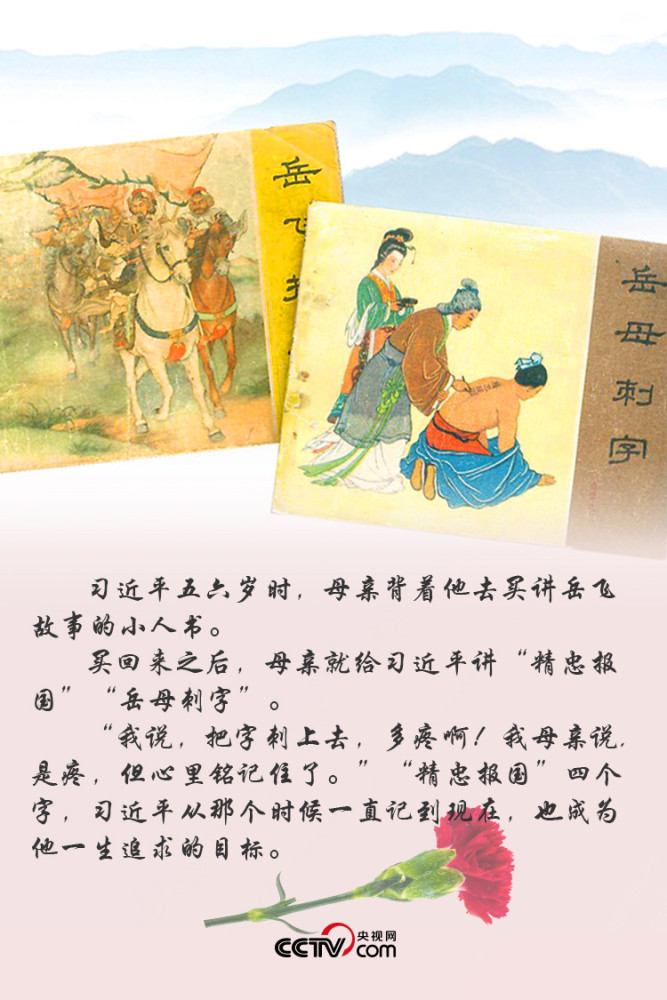 岳飞
岳母刺字
习近平五六岁时，母亲背着他去买讲岳飞
故事的小人书。
买回来之后，母亲就给习近平讲“精忠报
国”“岳母刺字”。
“我说，把字刺上去，多疼啊！我母亲说，
是疼，但心里铭记住了。”“精忠报国”四个
字，习近平从那个时候一直记到现在，也成为
他一生追求的目标。
CCTV央视网
com